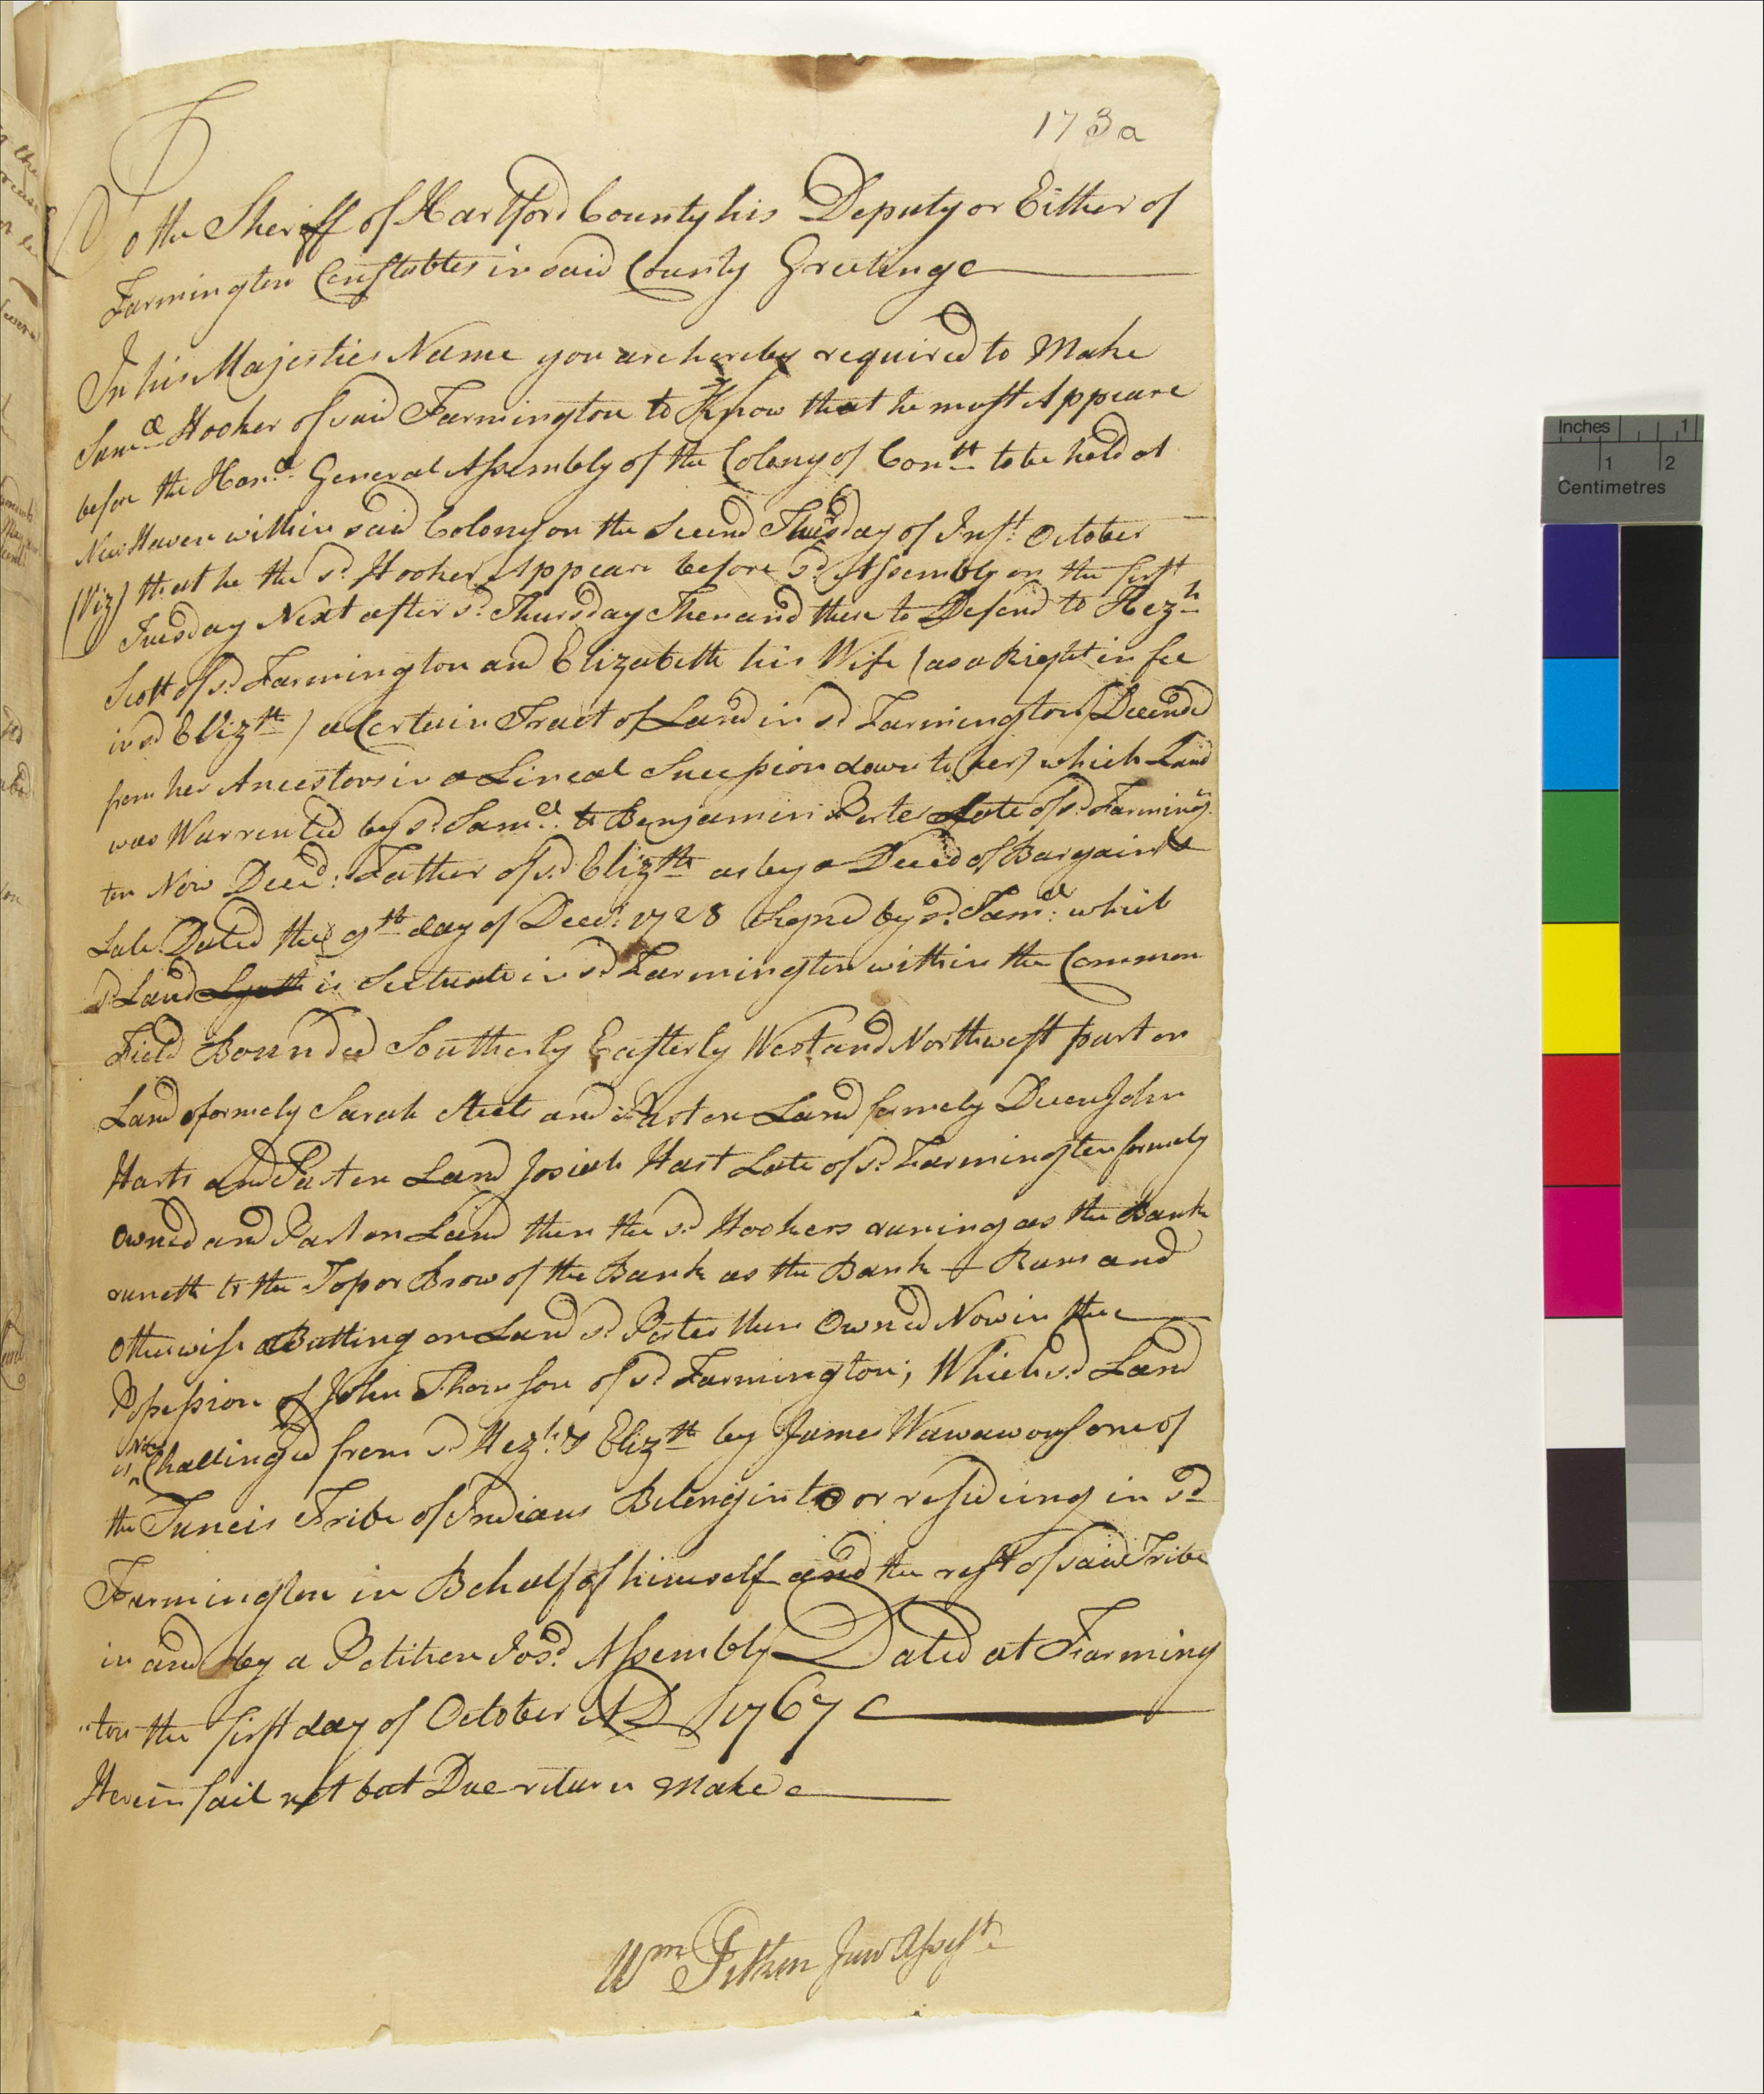 173a
To the Sheriff of Hartford County his Deputy or Either of
Farmington Constables in said County Greeting
In his Majesties Name you are hereby required to Make
Samll Hooker of said Farmington to Know that he must Appeare
before the Hond. General Assembly of the Colony of Contt to be held at
New Haven within said Colony on the Second Thursday of Inst. October
(Viz) that he the sd. Hooker Appeare before sd. Assembly on the first
Tuesday Next after sd. Thursday Then and there to Defend to Hezh
Scott of sd. Farmington and Elizabeth his Wife (as a Right in fee
in sd Elizth) a Certain Tract of Land in sd Farmington (Decended
from her Ancestors in a Lineal Succession down to her) which Land
was Warrented by sd. Samll. to Benjamin Porter Late of sd. Farming
ton Now Deced: Father of sd. Elizth as by a Deed of Bargain &
Sale Dated the 9th day of Decr. 1728 Signed by sd. Samll: which
sd. Land Lyeth is Scituate in sd Farmington within the Common
Field Bounded Southerly Easterly West and Northwest part on
Land formely Sarah Steels and Part on Land formely Deacn John
Harts and Part on Land Josiah Hart Late of sd. Farmington formely
owned and Part on Land then the sd. Hookers runing as the Bank
runeth to the Top or Brow of the Bank as the Bank Runs and
otherwise Butting on Land sd. Porter then Owned Now in the
Possession of John Thomson of sd Farmington; Which sd. Land
is Now Challinged from sd Hezh. & Elizth by James Wawawous one of
the Tuncis Tribe of Indians Belongin to or resideing in sd
Farmington in Behalf of himself and the rest of said Tribe
in and by a Petition to sd. Assembly Dated at Farming
"ton the first day of October AD 1767
Herein fail not but Due return Make
Wm Pitkin Junr Assistt.
Inches 1
1 2
Centimetres